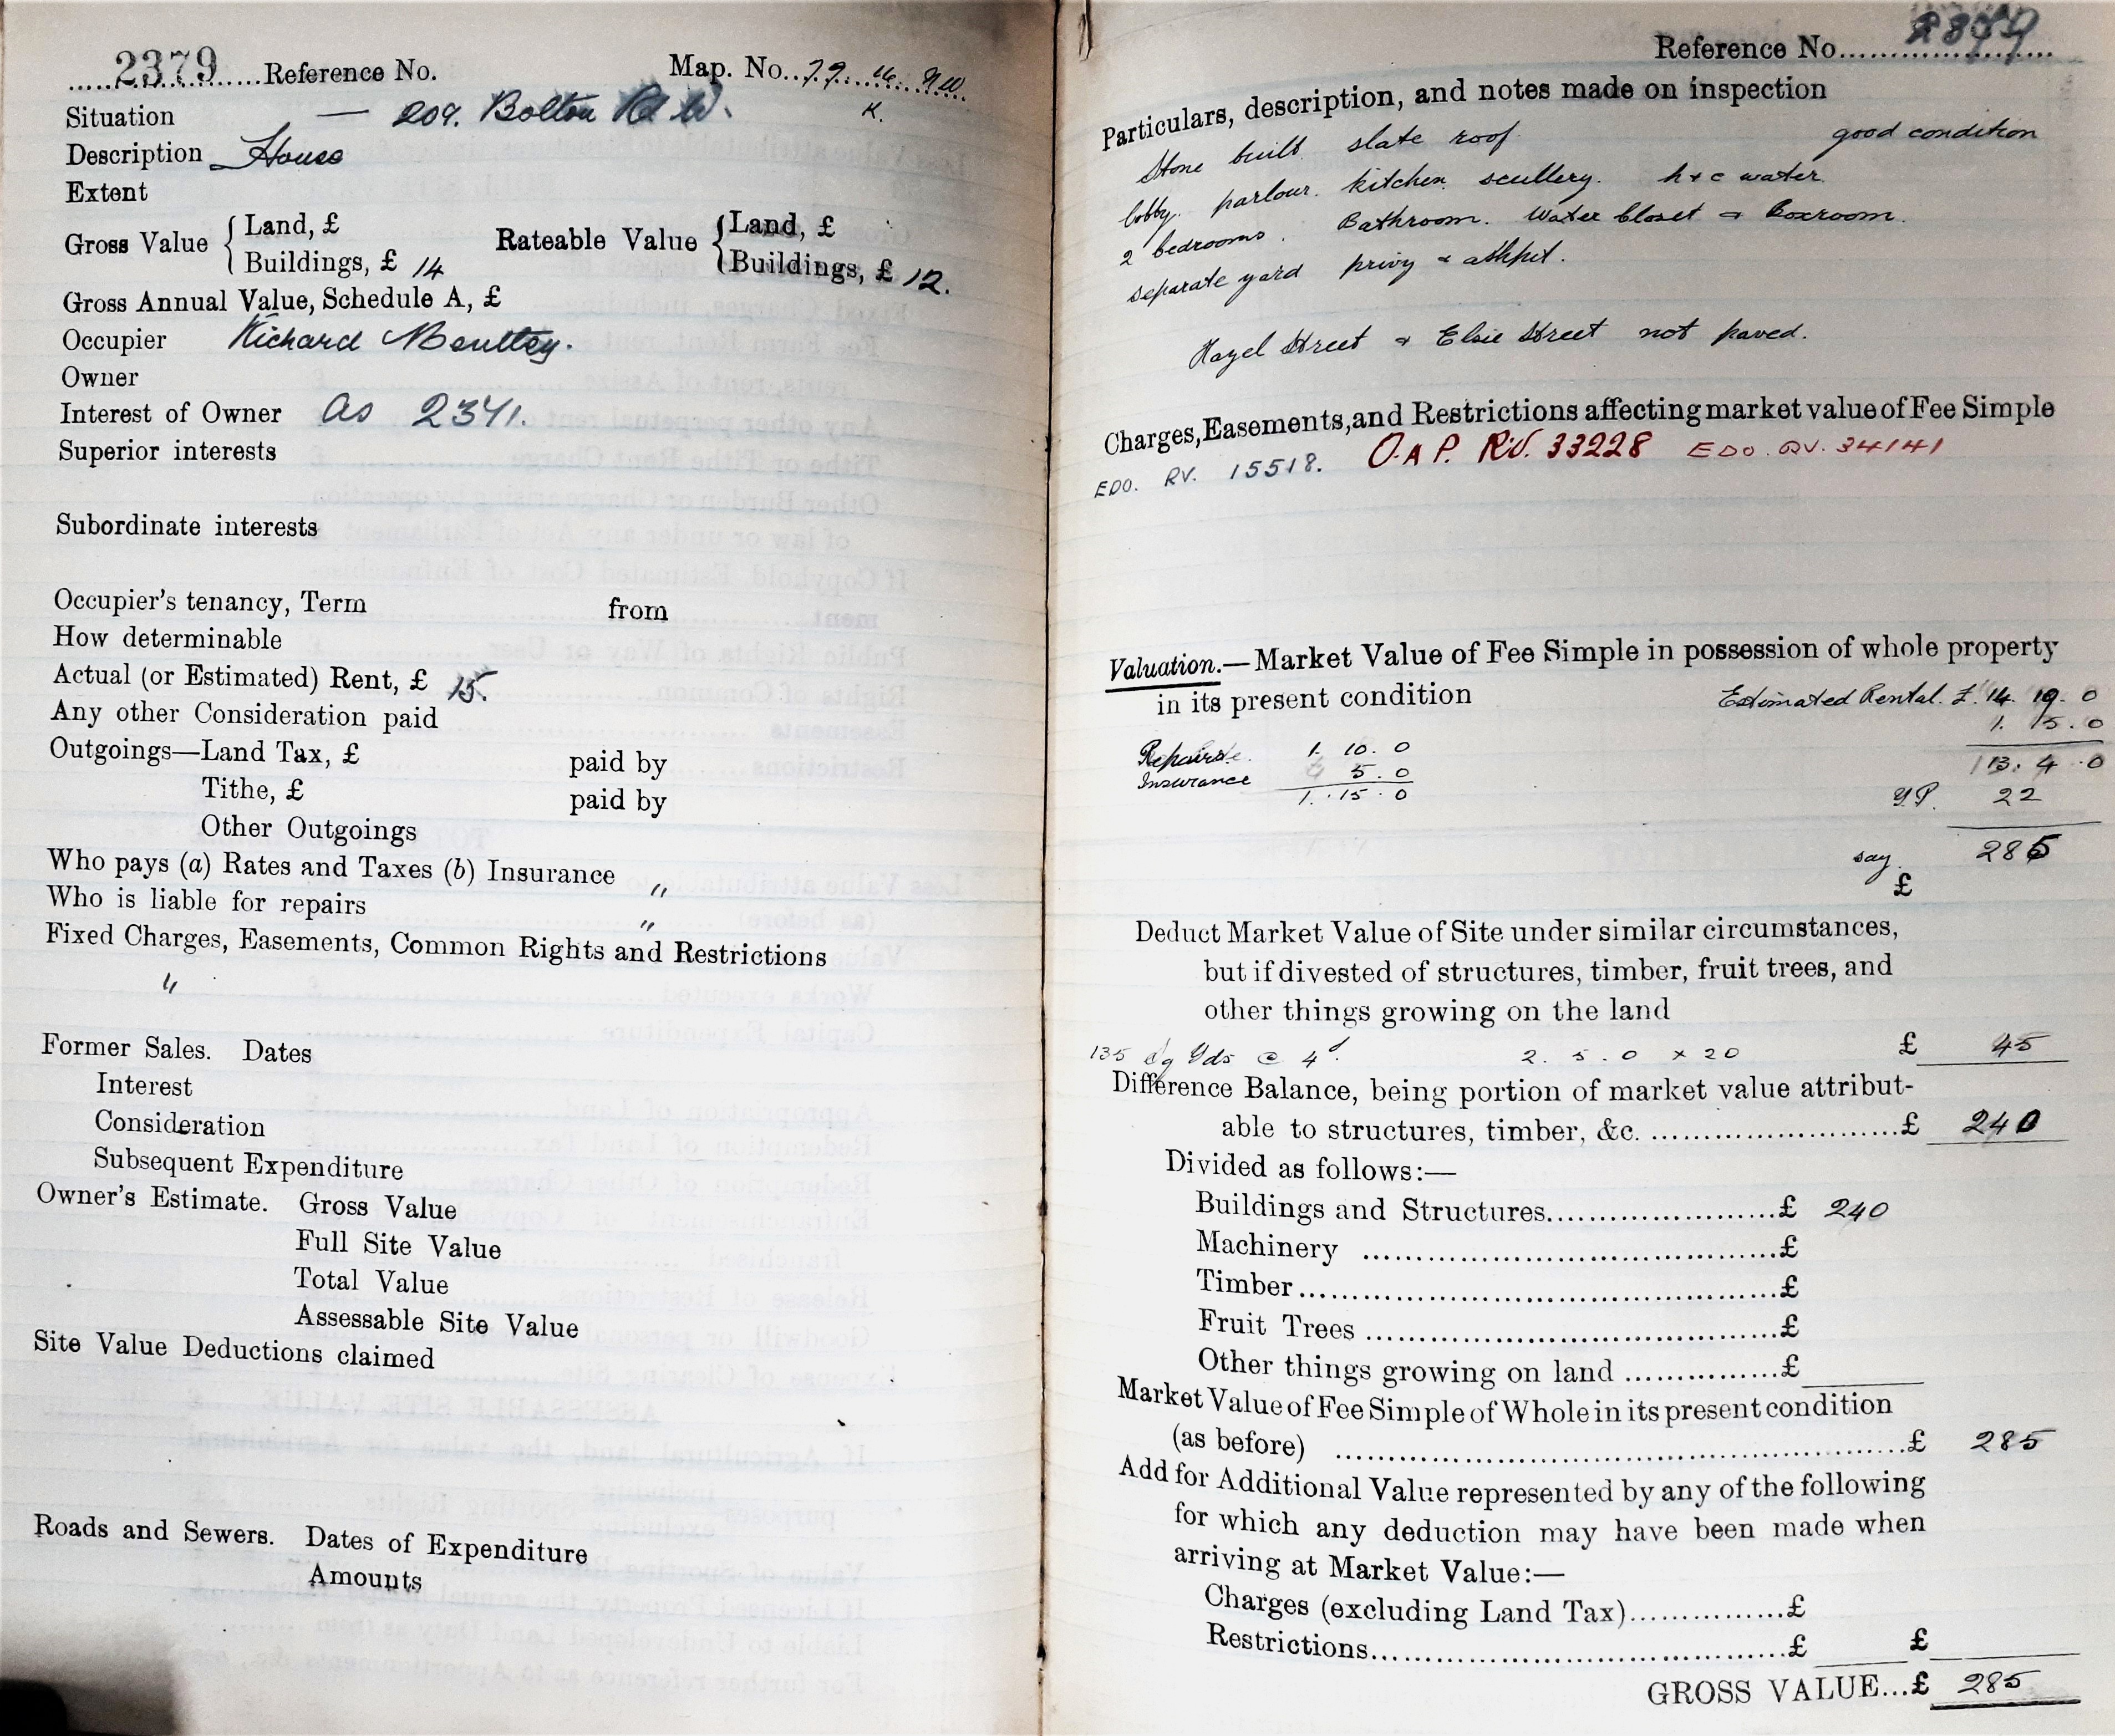 2379 Reference No. Map. No. 79. 16. NW
K.
Situation — 209. Bolton Rd W.
Description House
Extent
Gross Value { Land, £ Rateable Value { Land, £
Buildings, £ 14 Buildings, £ 12.
Gross Annual Value, Schedule A, £
Occupier Richard
Owner
Interest of Owner as 2341.
Superior interests
Subordinate interests
Occupier's tenancy, Term from
How determinable
Actual (or Estimated) Rent, £ 15.
Any other Consideration paid
Outgoings—Land Tax, £ paid by
Tithe, £ paid by
Other Outgoings
Who pays (a) Rates and Taxes (b) Insurance "
Who is liable for repairs "
Fixed Charges, Easements, Common Rights and Restrictions
"
Former Sales. Dates
Interest
Consideration
Subsequent Expenditure
Owner's Estimate. Gross Value
Full Site Value
Total Value
Assessable Site Value
Site Value Deductions claimed
Roads and Sewers. Dates of Expenditure
Amounts
Reference No.
Particulars, description, and notes made on inspection
Stone built slate roof. good condition
lobby. parlour. kitchen. scullery. h + c water.
2 bedrooms. Bathroom. Water Closet & Boxroom.
separate yard privy & ashpit.
Hazel Street & Elsie Street not paved.
Charges, Easements, and Restrictions affecting market value of Fee Simple
EDO. RV. 15518. O.A P. RV. 33228 EDO. RV. 34141
Valuation.—Market Value of Fee Simple in possession of whole property
in its present condition Estimated Rental. £. 14. 19. 0
1. 15. 0
Repairs. 1. 10. 0 13. 4. 0
Insurance 5. 0
1. 15. 0 Y.P. 22
say 285
£
Deduct Market Value of Site under similar circumstances,
but if divested of structures, timber, fruit trees, and
other things growing on the land
135 Sq Yds @ 4d. 2. 5. 0 x 20 £ 45
Difference Balance, being portion of market value attribut-
able to structures, timber, &c. £ 240
Divided as follows:—
Buildings and Structures £ 240
Machinery £
Timber £
Fruit Trees £
Other things growing on land £
Market Value of Fee Simple of Whole in its present condition
(as before) £ 285
Add for Additional Value represented by any of the following
for which any deduction may have been made when
arriving at Market Value:—
Charges (excluding Land Tax) £
Restrictions £ £
GROSS VALUE...£ 285